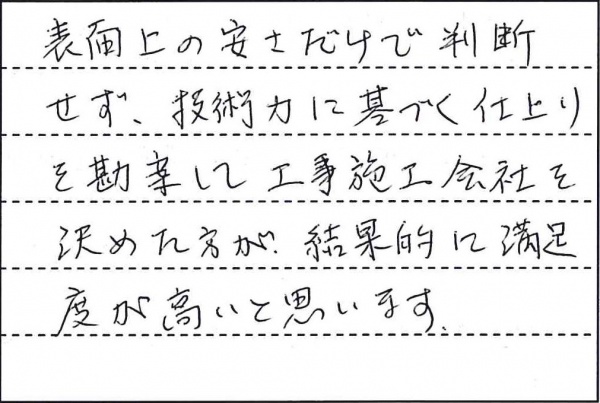 表面上の安さだけで判断
せず、技術力に基づく仕上り
を勘案して工事施工会社を
決めた方が、結果的に満足
度が高いと思います。